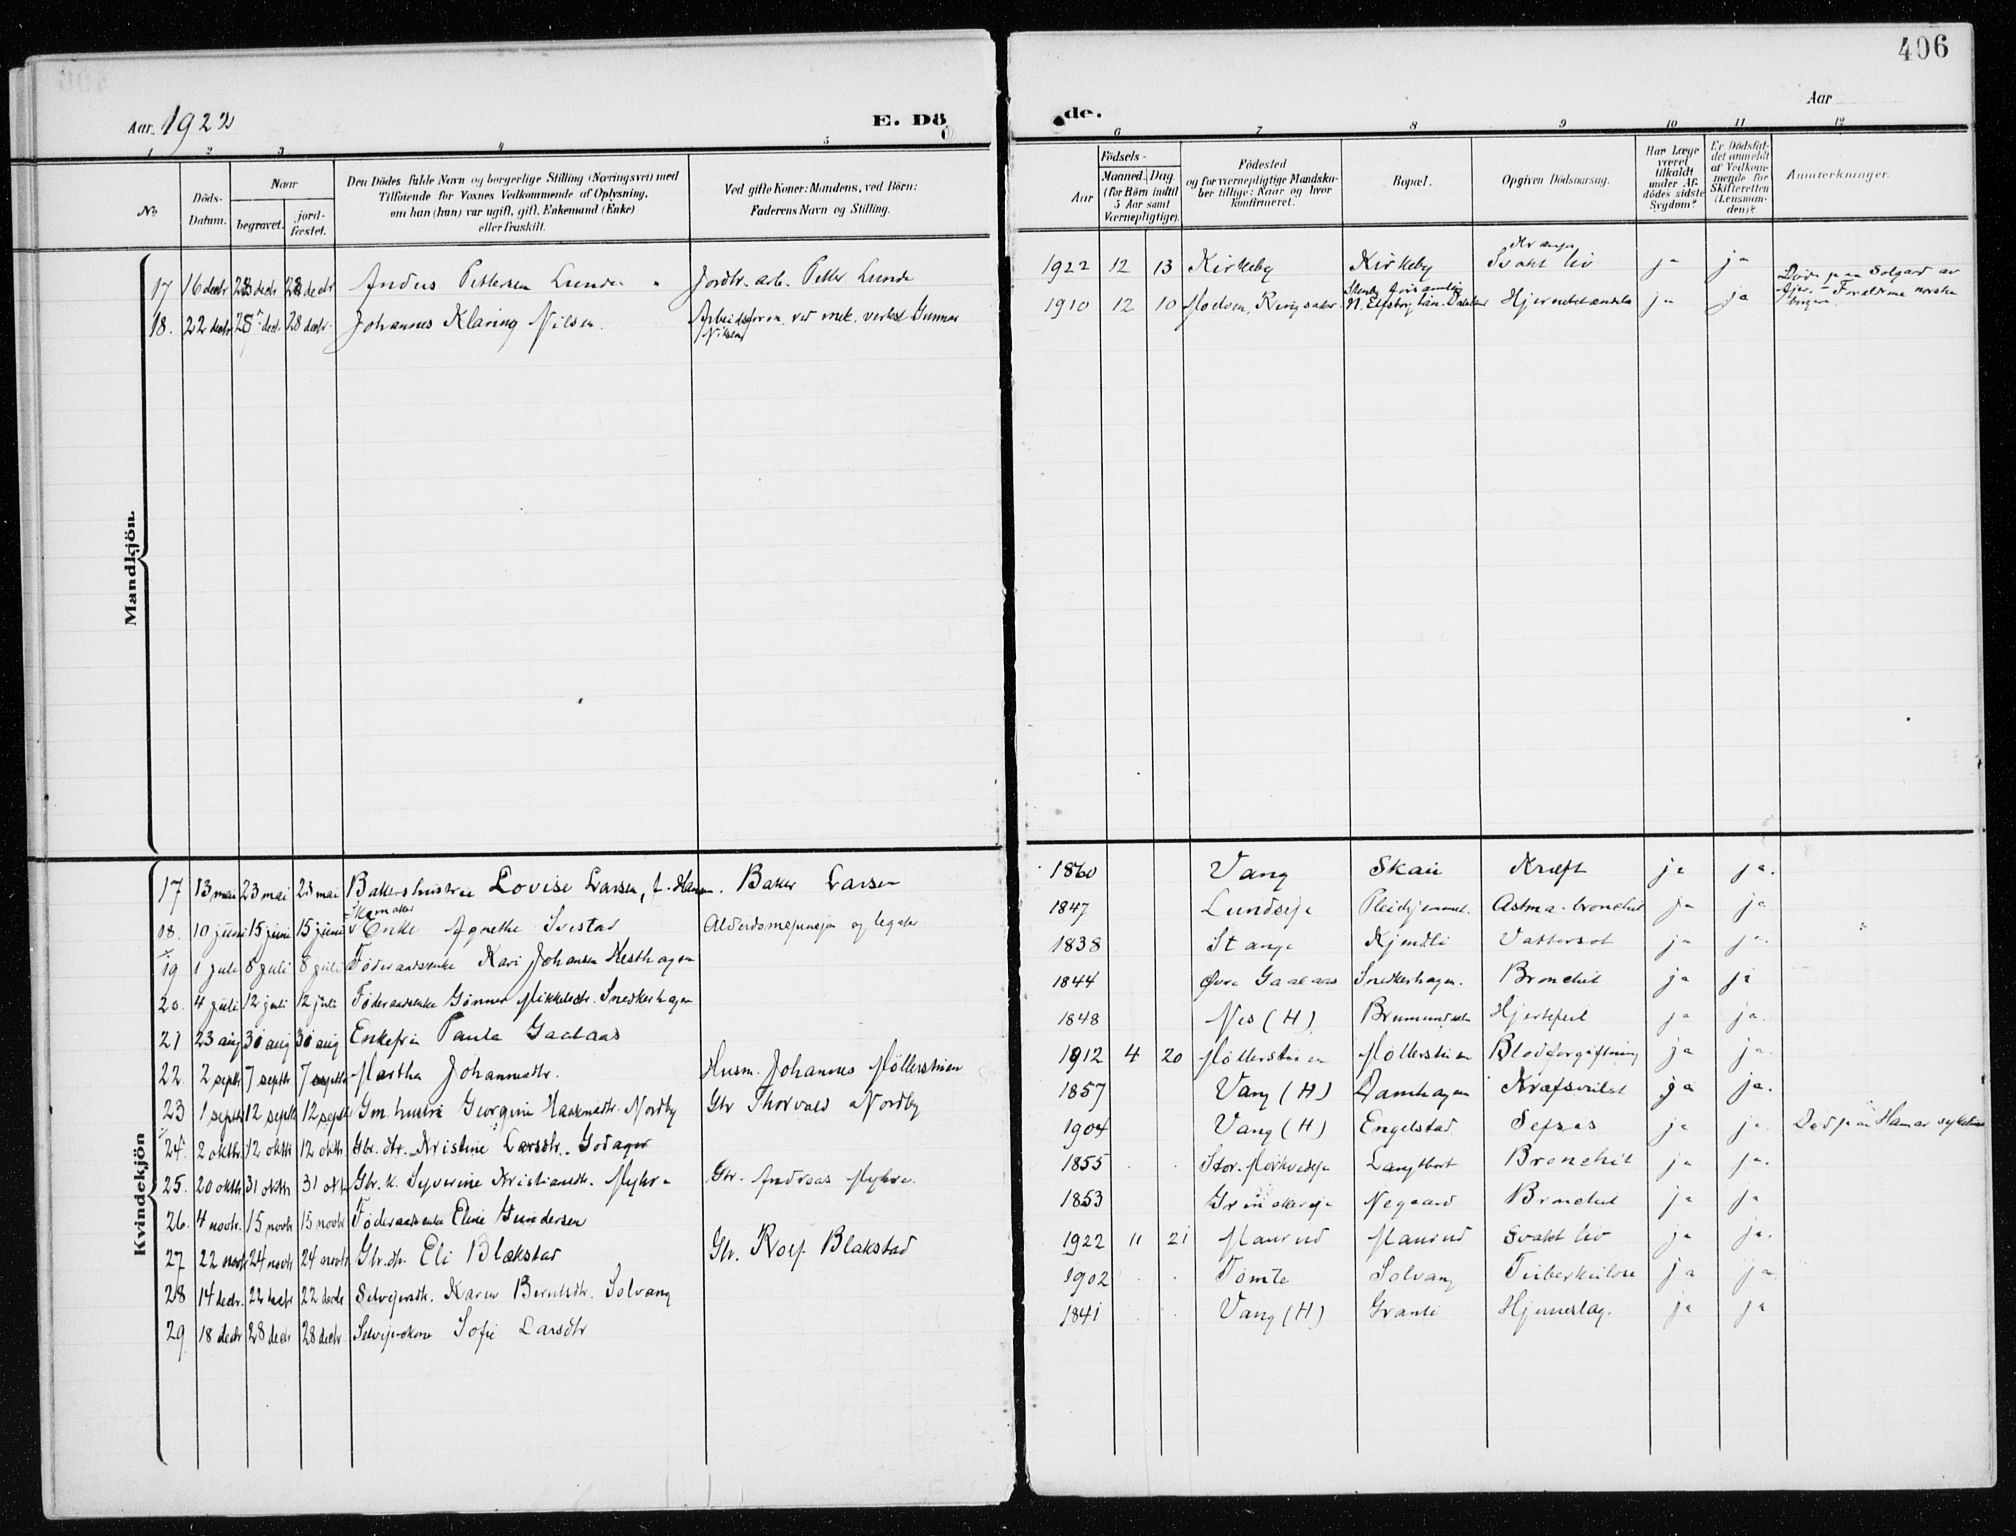 406
Aar 1922
E. Dö
de.
Aar
1 2 3 4 5 6 7 8 9 10 11 12
No
Döds-Datum.
Naar
begravet.
jord-fæstet.
Den Dödes fulde Navn og borgerlige Stilling (Næringsvei) med
Tilföiende for Voxnes Vedkommende af Oplysning,
om han (hun) var ugift, gift, Enkemand (Enke)
eller fraskilt.
Ved gifte Koner: Mandens, ved Börn:
Faderens Navn og Stilling.
Födsels-
Aar
Maaned. Dag.
(for Börn indtil
5 Aar samt
Værnepligtige).
Födested
og for værnepligtige Mandska-
ber tillige: Naar og hvor
konfirmeret.
Bopæl.
Opgiven Dödsaarsag.
Har Læge
været
tilkaldt
under Af-
dödes sidste
Sygdom?
Er Dödsfal-
det anmeldt
af Vedkom-
mende for
Skifteretten
(Lensman-
den)?
Anmærkninger.
Mandkjön.
17 16 decbr 28 decbr 28 decbr Anders Pettersen Lunde Jordbr. arb. Petter Lunde 1922 12 13 Kirkeby Kirkeby Svakt liv ja ja
18. 22 decbr 28 decbr. 28 decbr. Johannes Klaring Nilsen. Arbeidsform. ved mek. verkst Gunnar Nilsen 1910 12 10 Moelven, Ringsaker N. Elfsborg län. Hjernebetændelse ja ja
Kvindekjön
17 13 mai 23 mai 23 mai Bakershustru Lovise Larsen, f. Hansen. Baker Larsen 1860 Vang Skaii Kræft ja ja.
18. 10 juni 15 juni 15 juni Skomaker Enke Agnethe Svestad Alderdomspensjon og legater 1847 Lundseje Pleiehjemmet. Astma-bronchit ja ja
19 1 juli 8 juli 8 juli Føderaadsenke Kari Johansen Hesthagen 1838 Stange Kjendli Vattersot ja ja.
20. 4 juli 12 juli 12 juli Føderaadsenke Gønner Mikkelsdtr. Snedkerhagen 1844 Øvre Gaalaas Snedkerhagen. Bronchit ja ja
21 23 aug 30 aug 30 aug Enkefru Paula Gaalaas 1848 Nes (H) Brumunddal Hjertefeil ja ja.
22. 2 septbr 7 septbr 7 septbr Martha Johannesdtr. Husm. Johannes Møllerstuen 1912 4 20 Møllerstuen Møllerstuen Blodforgiftning ja ja.
23 1 septbr 12 septbr 12 septbr Gm. hustru Georgine Haakensdtr. Nordby Gbr Thorvald Nordby 1857 Vang (H) Damhagen Kræfsvulst ja ja.
24. 2 oktbr 12 oktbr 12 oktbr Gbr. dtr. Kristine Larsdtr. Godager 1904 Vang (H) Engelstad Sepsis ja ja. Død paa Hamar sykehus
25. 20 oktbr 31 oktbr 31 oktbr Gbr. k. Syverine Kristiansdtr. Myhre Gbr. Andreas Myhre. 1855 Stor-Mørkvedeje Langtbort Bronchit ja ja.
26. 4 novbr. 15 novbr 15 novbr Føderaadsenke Eline Gundersen 1853 Negaard Bronchit ja ja
27 22 novbr 24 novbr 24 novbr Gbr. dtr. Eli Blakstad Gbr. Rolf Blakstad 1922 11 21 Maurud Maurud Svakt liv ja ja.
28 14 decbr. 22 decbr 22 decbr Selveiersdtr. Karen Berntsdtr. Solvang 1902 Tømte Solvang Tuberkulose ja ja
29 18 decbr 28 decbr 28 decbr. Selveierkone Sofie Larsdtr 1841 Vang (H) Granli Hjerneslag. ja ja